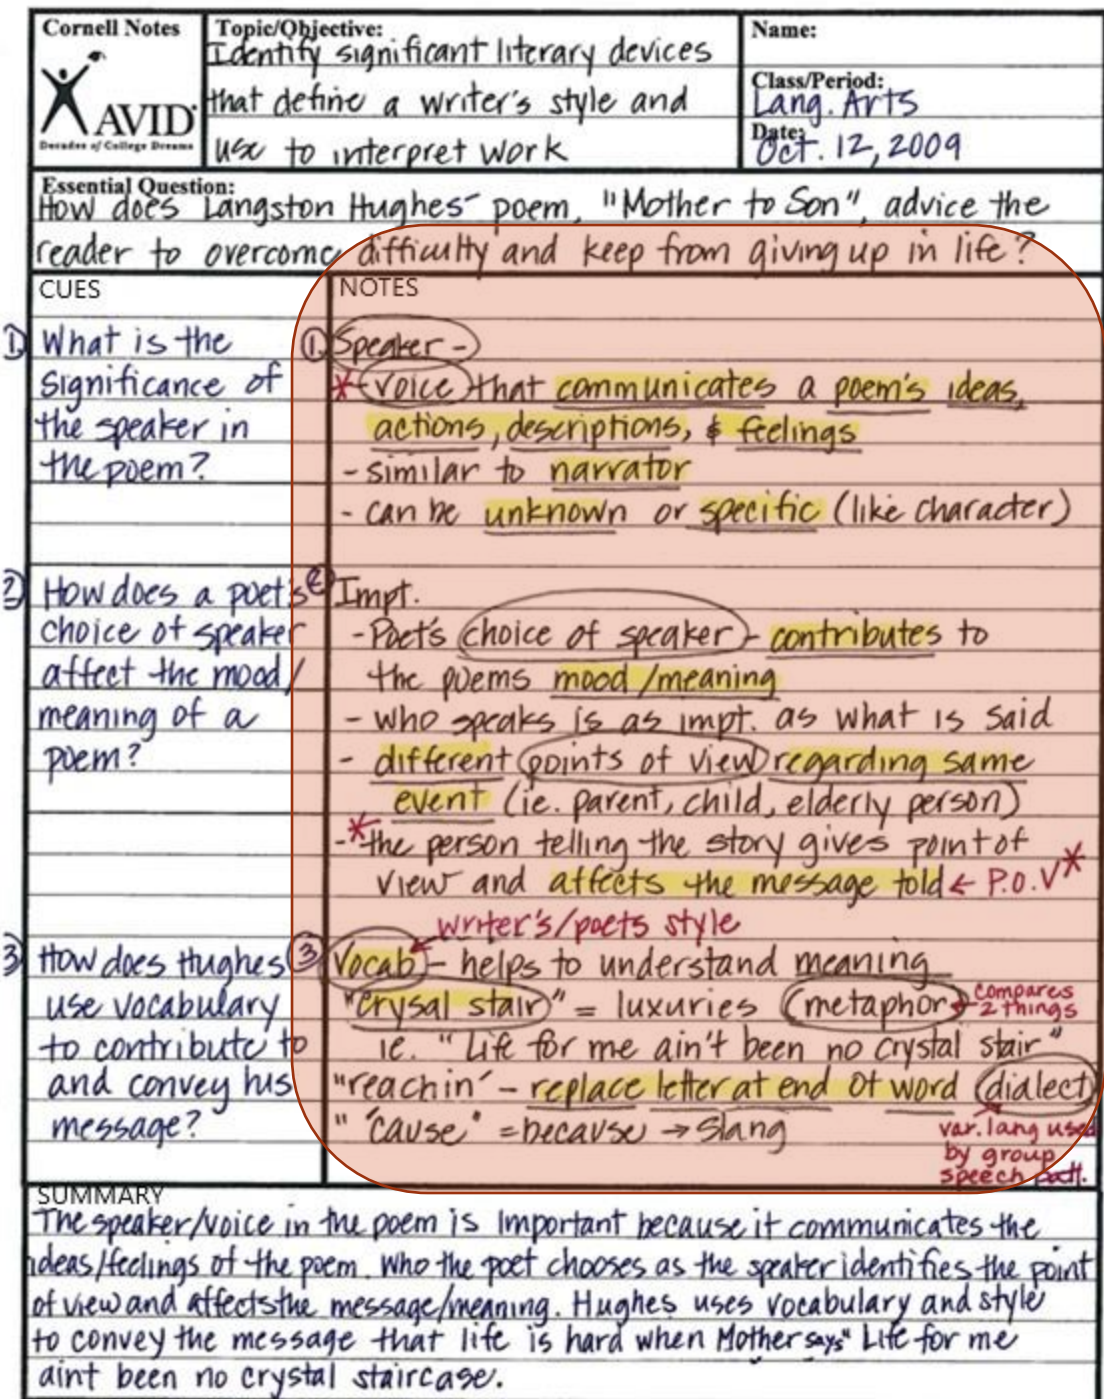 Cornell Notes
AVID
Decades of College Dreams
Topic/Objective:
Identify significant literary devices
that define a writer's style and
use to interpret work
Name:
Class/Period:
Lang. Arts
Date:
Oct. 12, 2009
Essential Question:
How does Langston Hughes' poem, "Mother to Son", advice the
reader to overcome difficulty and keep from giving up in life?
CUES
① What is the
significance of
the speaker in
the poem?
② How does a poet's
choice of speaker
affect the mood/
meaning of a
poem?
③ How does Hughes
use vocabulary
to contribute to
and convey his
message?
NOTES
① Speaker -
* - voice that communicates a poem's ideas,
actions, descriptions, & feelings
- similar to narrator
- can be unknown or specific (like character)
② Impt.
- Poet's choice of speaker - contributes to
the poems mood/meaning
- who speaks is as impt. as what is said
- different points of view regarding same
event (ie. parent, child, elderly person)
- * the person telling the story gives point of
view and affects the message told ← P.O.V *
writer's/poets style
③ Vocab - helps to understand meaning
"crysal stair" = luxuries (metaphor) ← compares
2 things
ie. "Life for me ain't been no crystal stair"
"reachin' - replace letter at end of word (dialect)
"'cause" = because → slang
var. lang used
by group
speech patt.
SUMMARY
The speaker/voice in the poem is important because it communicates the
ideas/feelings of the poem. Who the poet chooses as the speaker identifies the point
of view and affects the message/meaning. Hughes uses vocabulary and style
to convey the message that life is hard when Mother says" Life for me
aint been no crystal staircase.